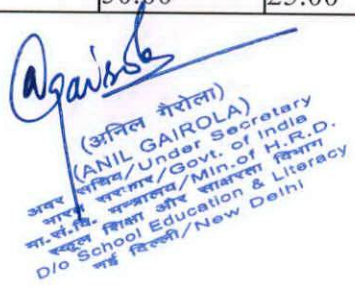 50.00 25.00
(अनिल गैरोला)
(ANIL GAIROLA)
अवर सचिव/Under Secretary
भारत सरकार/Govt. of India
मा.सं.वि. मन्त्रालय/Min.of H.R.D.
स्कूल शिक्षा और साक्षरता विभाग
D/o School Education & Literacy
नई दिल्ली/New Delhi